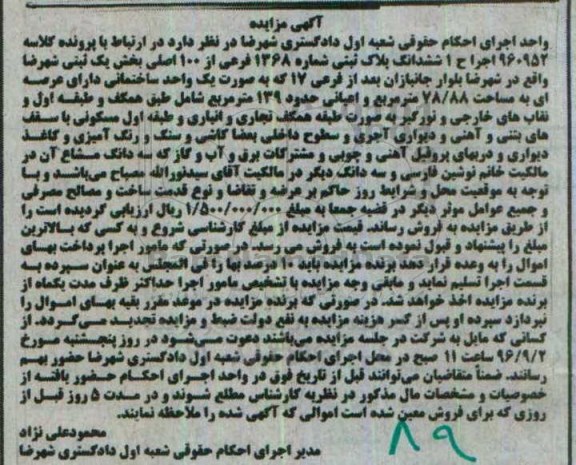 آگهی مزایده
واحد اجرای احکام حقوقی شعبه اول دادگستری شهرضا در نظر دارد در ارتباط با پرونده کلاسه
۹۶۰۹۵۲ اجرا ح ۱ ششدانگ پلاک ثبتی شماره ۱۳۶۸ فرعی از ۱۰۰ اصلی بخش یک ثبتی شهرضا
واقع در شهرضا بلوار جانبازان بعد از فرعی ۱۷ که به صورت یک واحد ساختمانی دارای عرصه
ای به مساحت ۷۸/۸۸ مترمربع و اعیانی حدود ۱۳۹ مترمربع شامل طبق همکف و طبقه اول و
نقاب های خارجی و نورگیر به صورت طبقه همکف تجاری و انباری و طبقه اول مسکونی با سقف
های بتنی و آهنی و دیواری آجری و سطوح داخلی بعضا کاشی و سنگ و رنگ آمیزی و کاغذ
دیواری و دربهای پروفیل آهنی و چوبی و مشترکات برق و آب و گاز که سه دانگ مشاع آن در
مالکیت خانم نوشین فارسی و سه دانگ دیگر در مالکیت آقای سیدنورالله مصباح می‌باشد و با
توجه به موقعیت محل و شرایط روز حاکم بر عرضه و تقاضا و نوع قدمت ساخت و مصالح مصرفی
و جمیع عوامل موثر دیگر در قضیه جمعا به مبلغ ۱/۵۰۰/۰۰۰/۰۰۰ ریال ارزیابی گردیده است را
از طریق مزایده به فروش رساند. قیمت مزایده از مبلغ کارشناسی شروع و به کسی که بالاترین
مبلغ را پیشنهاد و قبول نموده است به فروش می رسد. در صورتی که مامور اجرا پرداخت بهای
اموال را به وعده قرار دهد برنده مزایده باید ۱۰ درصد بها را فی المجلس به عنوان سپرده به
قسمت اجرا تسلیم نماید و مابقی وجه مزایده با تشخیص مامور اجرا حداکثر ظرف مدت یکماه از
برنده مزایده اخذ خواهد شد. در صورتی که برنده مزایده در موعد مقرر بقیه بهای اموال را
نپردازد سپرده او پس از کسر هزینه مزایده به نفع دولت ضبط و مزایده تجدید می‌گردد. از
کسانی که مایل به شرکت در جلسه مزایده می‌باشند دعوت می‌شود در روز پنجشنبه مورخ
۹۶/۹/۲ ساعت ۱۱ صبح در محل اجرای احکام حقوقی شعبه اول دادگستری شهرضا حضور بهم
رسانند. ضمناً متقاضیان می‌توانند قبل از تاریخ فوق در واحد اجرای احکام حضور یافته از
خصوصیات و مشخصات مال مذکور در نظریه کارشناس مطلع شوند و در مدت ۵ روز قبل از
روزی که برای فروش معین شده است اموالی که آگهی شده را ملاحظه نمایند.
محمودعلی نژاد
مدیر اجرای احکام حقوقی شعبه اول دادگستری شهرضا
۸۹